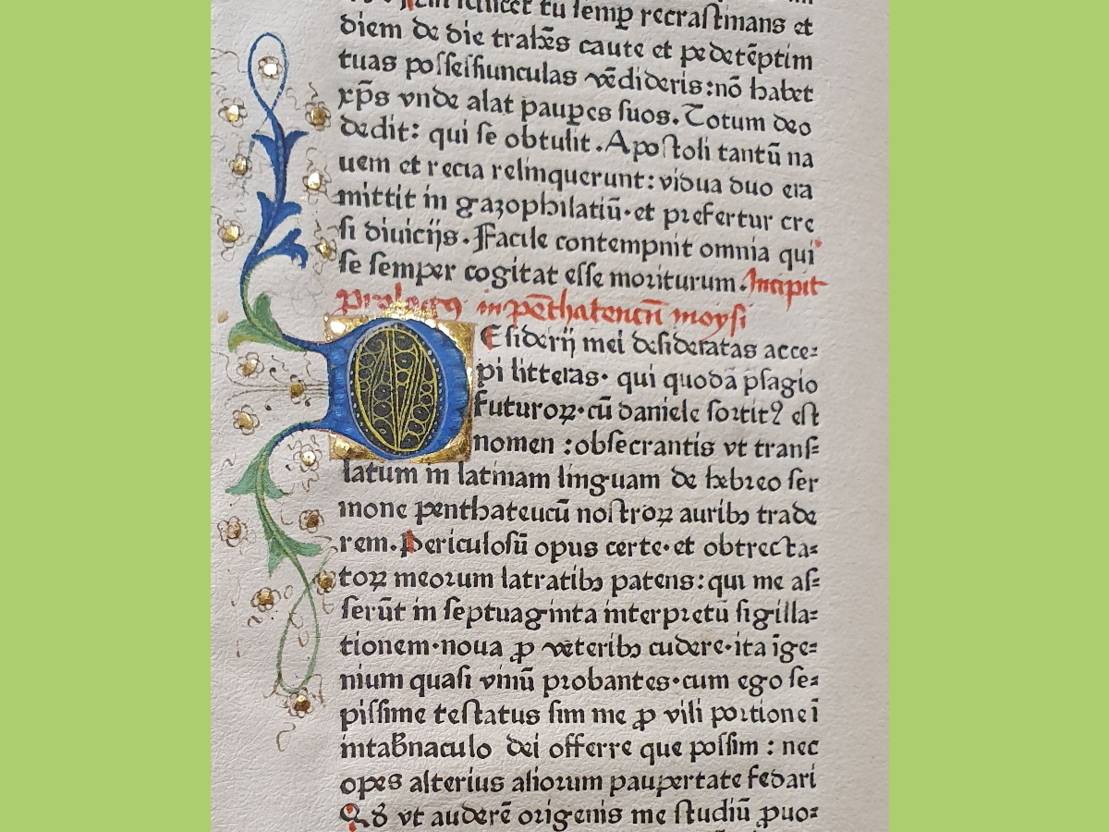 tu semp̲ recrastinans et
diem de die trahēs caute et pedetēptim
tuas possessiunculas vēdideris:nō habet
xp̄s vnde alat paup̲es suos. Totum deo
dedit: qui se obtulit. Apostoli tantū na
uem et recia relinquerunt: vidua duo era
mittit in gazophilatiū·et prefertur cre
si diuicijs. Facile contempnit omnia qui
se semper cogitat esse moriturum. Incipit
Prologus in pēthateucū moysi
DEsiderij mei desideratas acce⸗
pi litteras· qui quodā p̱sagio
futuroꝝ·cū daniele sortitꝰ est
nomen :obsecrantis vt trans⸗
latum in latinam linguam de hebreo ser
mone penthateucū nostroꝝ auribꝫ trade
rem. Periculosū opus certe·et obtrecta⸗
toꝝ meorum latratibꝫ patens: qui me as⸗
serūt in septuaginta interpretū sigilla⸗
tionem·noua ꝓ veteribꝫ cudere·ita īge⸗
nium quasi vinū probantes·cum ego se⸗
pissime testatus sim me ꝓ vili portione ī
intab̄naculo dei offerre que possim : nec
opes alterius aliorum paupertate fedari
Qd̄ vt auderē origenis me studiū ꝓuo⸗